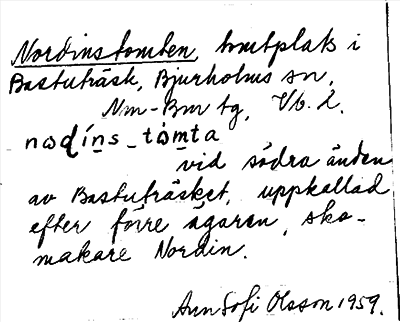 Nordinstomten, tomtplats i
Bastuträsk, Bjurholms sn,
Nm-Bm tg, Vb. l.
nodíns_tòmta
vid södra änden
av Bastuträsket, uppkallad
efter förre ägaren, sko-
makare Nordin.
Ann Sofi Olsson 1959.